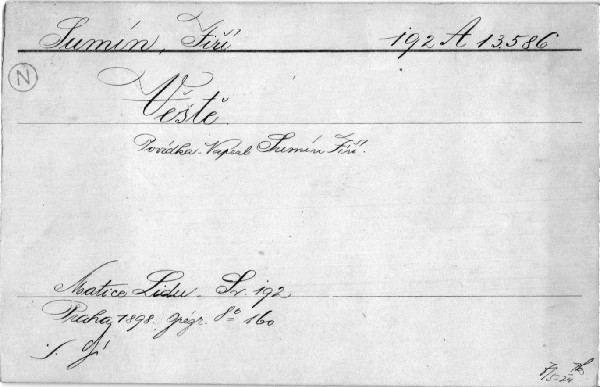 Sumín, Jiří 192 A 13.586
N
Věště.
Povídka. Napsal Sumín Jiří.
Matice Lidu. Sv. 192.
Praha, 1898. Grégr. 8° 160